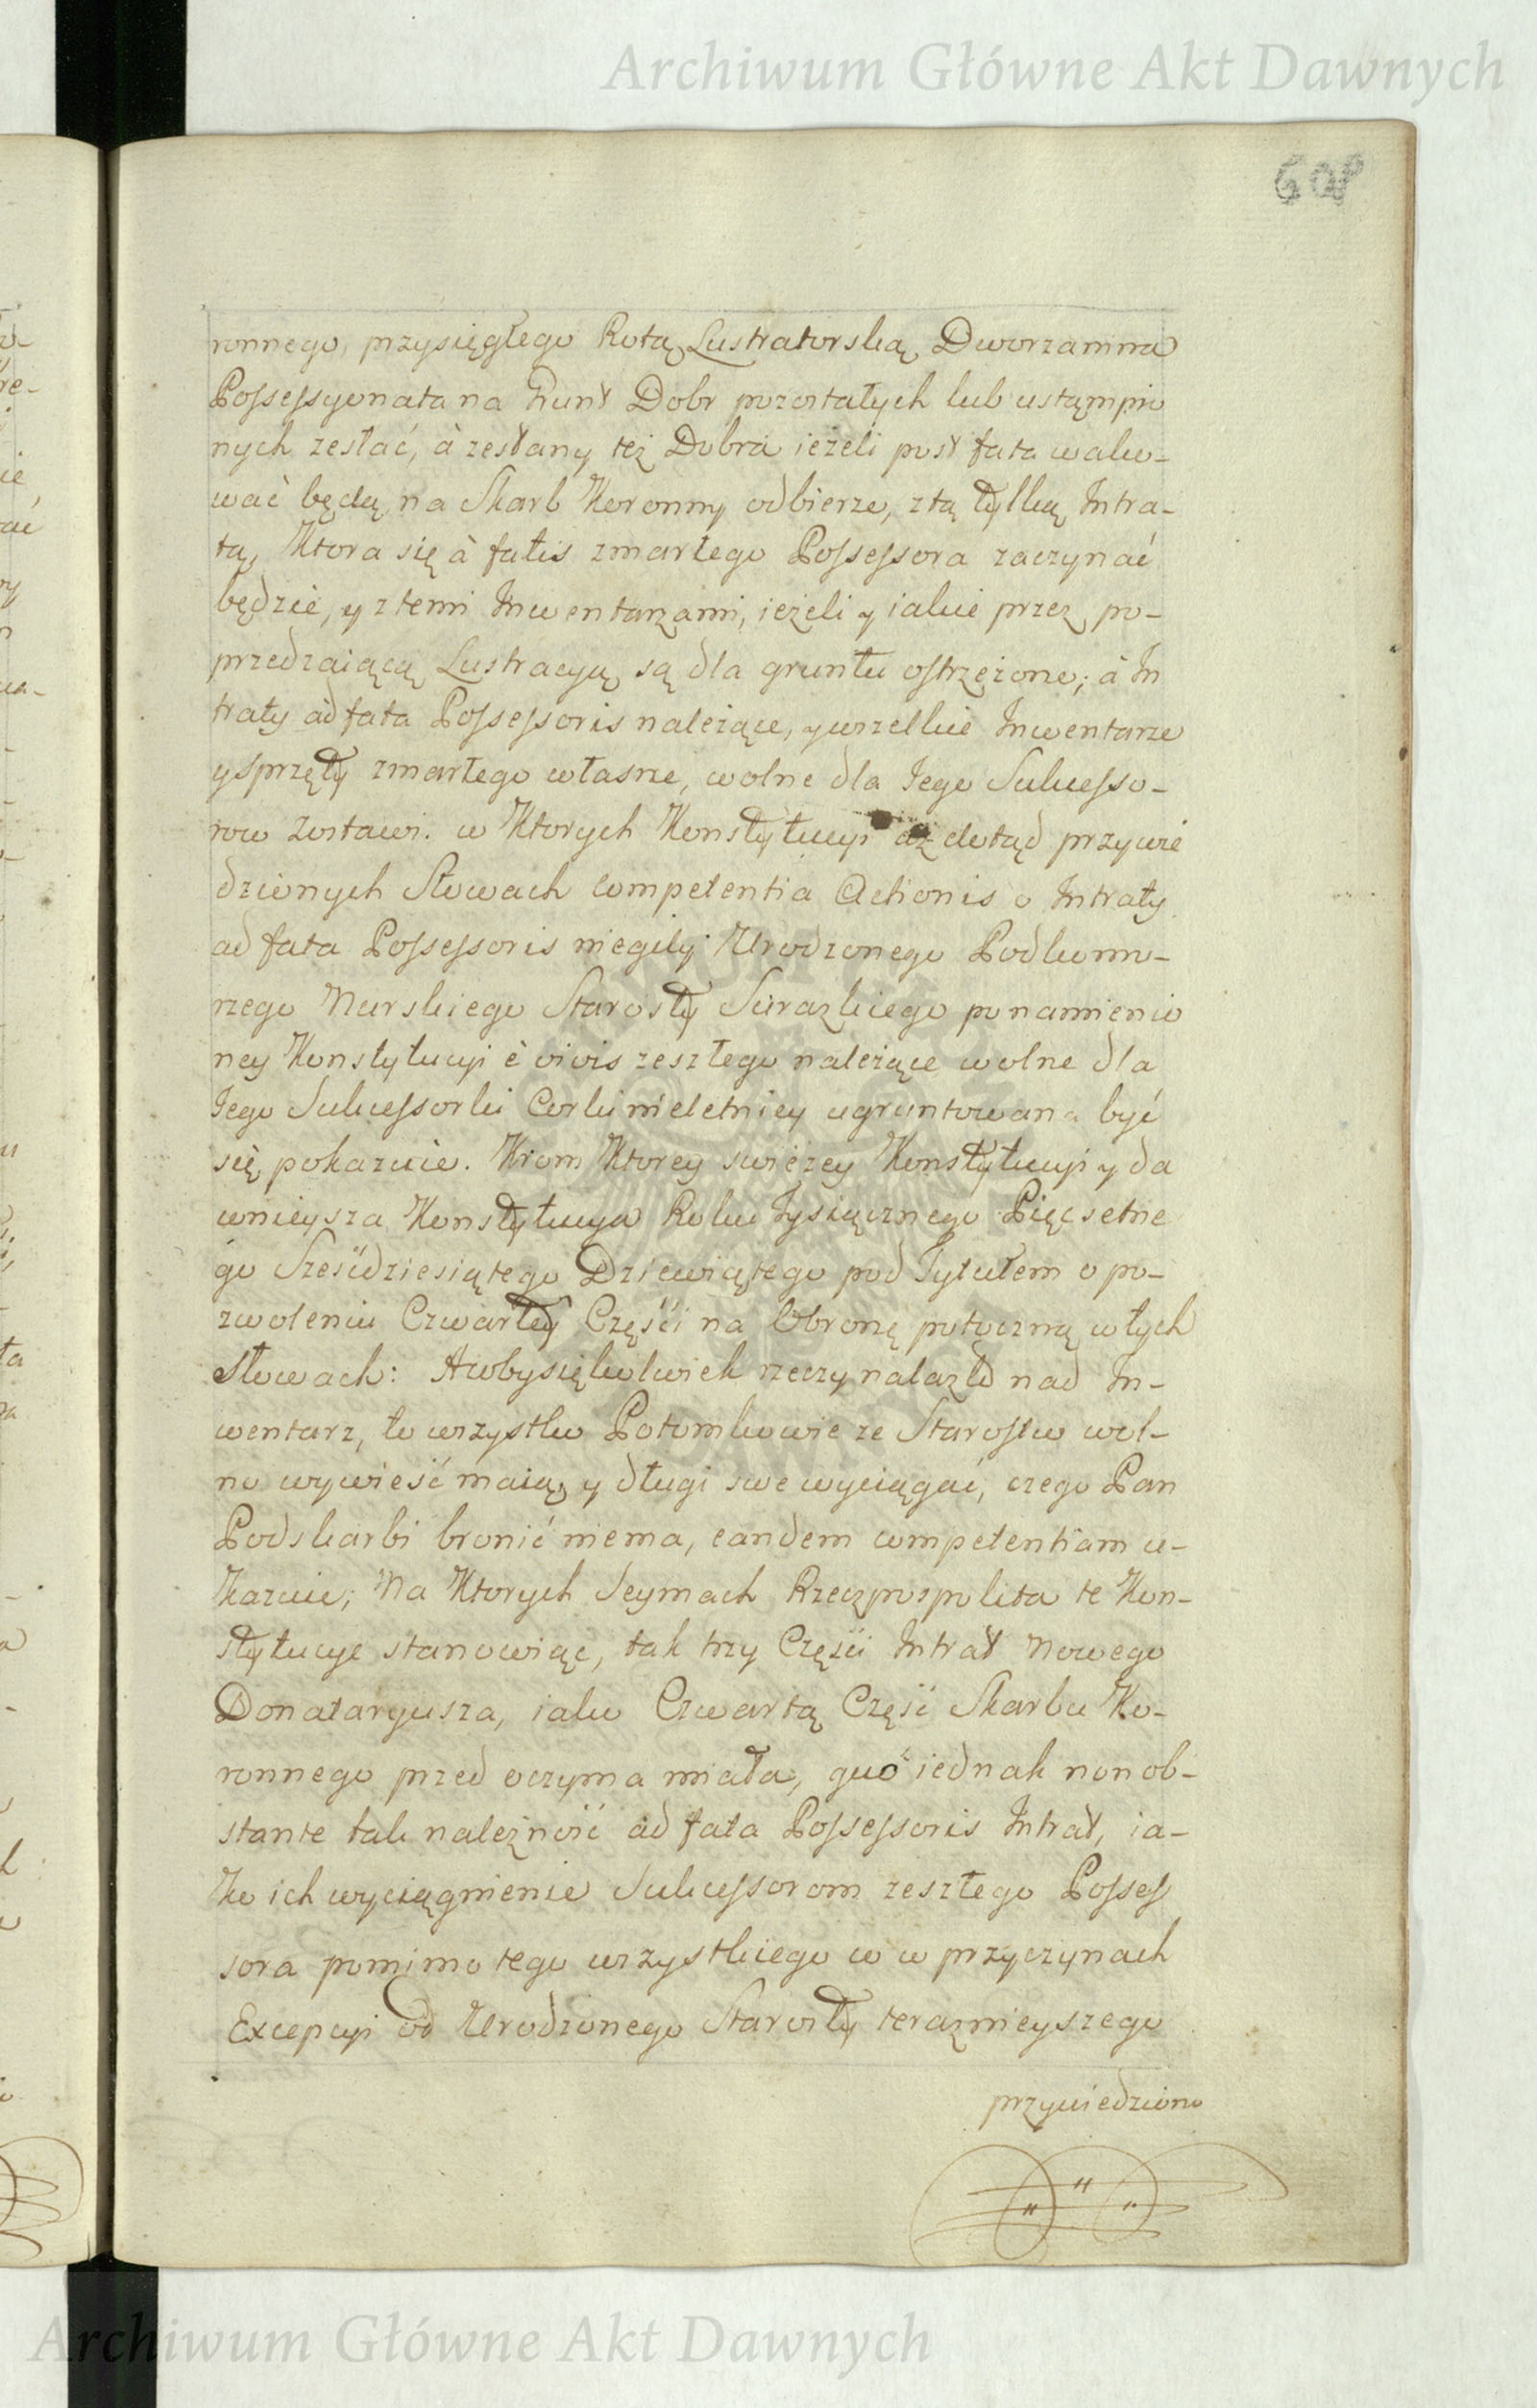 Archiwum Główne Akt Dawnych
ronnego, przysięgłego Rotą Lustratorską Dworzanina
Possessyonata na Grunt Dobr pozostałych lub ustąmpio
nych zesłać, à zesłany też Dobra ieżeli post fata wako-
wać będą na Skarb Koronny odbierze, z tą tylką Intra-
tą, Ktora się à fatis zmarłego Possessora zaczynać
będzie, y z temi Inwentarzami, ieżeli y iakie przez po-
przedzaiącą Lustracyą są dla gruntu ostrzeżone; à In
traty ad fata Possessoris należące, y wszelkie Inwentarze
y sprzęty zmarłego własne, wolne dla Jego Sukcesso-
row zostawi. w Ktorych Konstytucyi aż dotąd przywie
dzionych Słowach competentia Actionis o Intraty
ad fata Possessoris niegdy Urodzonego Podkomo-
rzego Nurskiego Starosty Surazkiego po namienio
ney Konstytucyi è vivis zeszłego należące wolne dla
Jego Sukcessorki Corki nieletniey ugruntowana być
się pokazuie. Krom Ktorey swieżey Konstytucyi y da
wnieysza Konstytucya Roku Tysiącznego Pięcsetne
go Sześćdziesiątego Dziewiątego pod Tytułem o po-
zwoleniu Czwartey Części na Obronę potoczną w tych
Słowach: A coby się kolwiek rzeczy nalazło nad In-
wentarz, to wszystko Potomkowie ze Starostw wol-
no wywieść maią, y długi swe wyciągać, czego Pan
Podskarbi bronić niema, eandem competentiam u-
Kazuie; Na Ktorych Seymach Rzeczpospolita te Kon-
stytucye stanowiąc, tak trzy Części Intrat Nowego
Donataryusza, iako Czwartą Część Skarbu Ko-
ronnego przed oczyma miała, quo iednak non ob-
stante tak należność ad fata Possessoris Intrat, ia-
Ko ich wyciągnienie Sukcessorom zeszłego Posses
sora pomimo tego wszystkiego co w przyczynach
Excepcyi od Urodzonego Starosty teraznieyszego
przywiedziono
Archiwum Główne Akt Dawnych